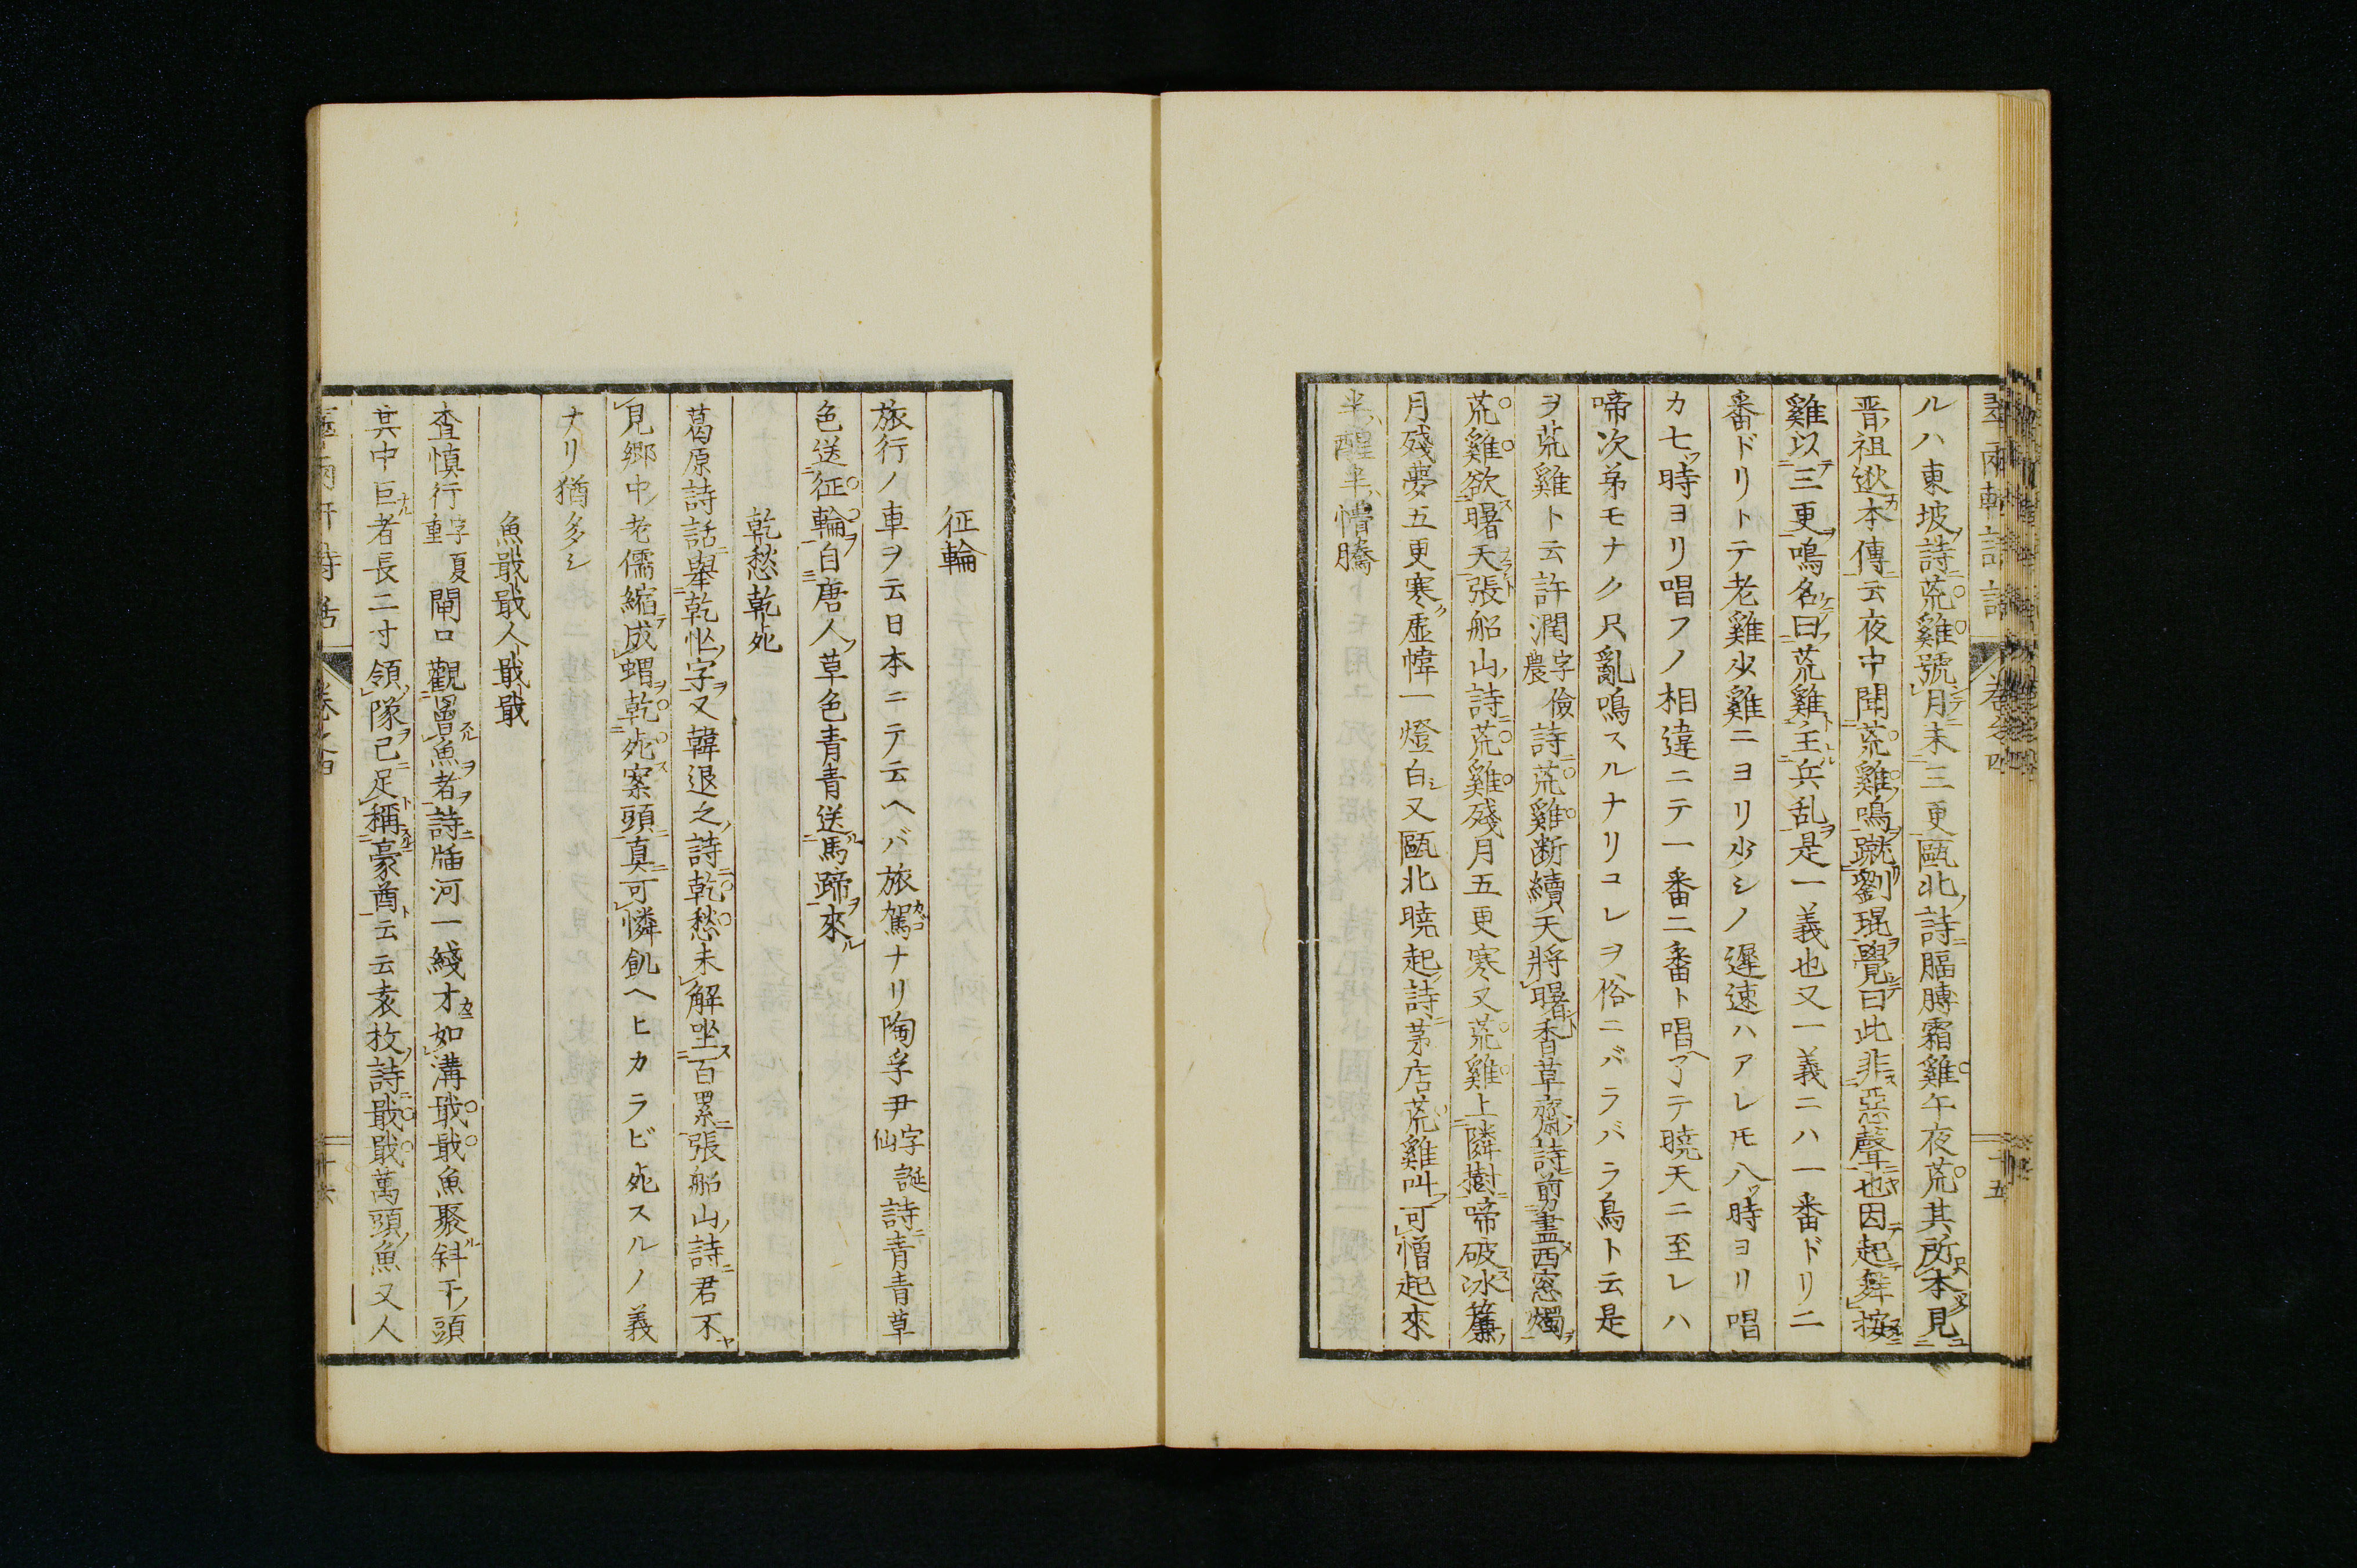 ルハ東坡詩荒雞號月未三更甌北詩膈膊霜雞午夜荒其所本見
晋祖逖本傳云夜中聞荒雞鳴蹴劉琨覺曰此非惡聲也因起舞按
雞以三更鳴名曰荒雞主兵乱是一義也又一義ニハ一番ドリ二
番ドリトテ老雞少雞ニヨリ少シノ遲速ハアレ𪜈八ツ時ヨリ唱
カ七ツ時ヨリ唱フノ相違ニテ一番二番ト唱ヘ了テ曉天ニ至レハ
啼次弟モナク只亂鳴スルナリコレヲ俗ニバラバラ鳥ト云是
ヲ荒雞ト云許潤字農儉詩荒雞断續天將曙香草齋詩剪盡西窓燭
荒雞欲曙天張船山詩荒雞殘月五更寒又荒雞上隣樹啼破冰簾
月殘夢五更寒虛幃一燈白又甌北曉起詩茅店荒雞叫可憎起來
半醒半懵騰
征輪
旅行ノ車ヲ云日本ニテ云ヘバ旅駕ナリ陶孚尹字誕仙詩青青草
色送征輪自唐人草色青青送馬蹄來
乾愁乾死
葛原詩話舉乾忙字又韓退之詩乾愁未解坐百累張船山詩君不
見鄉中老儒縮成蝟乾死案頭真可憐飢ヘヒカラビ死スルノ義
ナリ猶多シ
魚戢戢人戢戢
查慎行字夏重閘口觀罾魚者詩牐河一綫才如溝戢戢魚聚斜干頭
其中巨者長二寸領隊已足稱豪酋云云袁枚詩戢戢萬頭魚又人
卷之四
十六